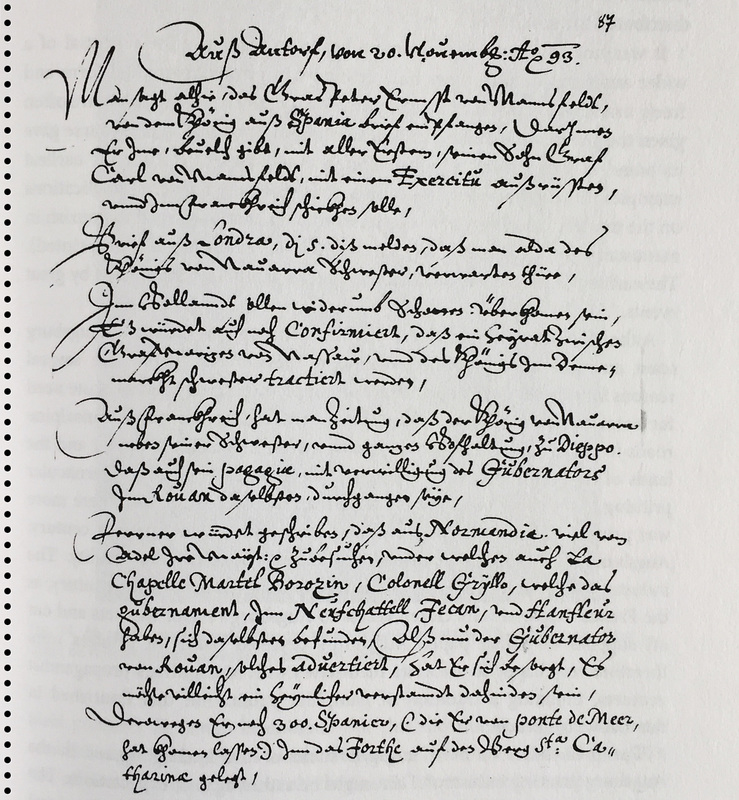 87
Auß Antorf, von 20. Novemb: Aº 93.
Man sagt alhie, das Graf Peter Ernst von Mannsfeldt,
von dem König auß Spania brief empfangen, darinnen
Er Ime, beuelch gibt, mit aller Erstem, seinen Sohn Graf
Carl von Mannsfeldt, mit einem Exercitu außrüsten,
unnd in Franckhreich schickhen solle,
Brief auß Londra, dj 5. diß melden, daß man alda des
Königs von Nauarra Schwester, verwarten thüe,
Inn Hollanndt sollen widerumb Schotten überkhomen sein,
Eß würdet auch noch Confirmiert, daß ein heyrat zwischen
Graf Moritzen von Nassaw, unnd des Königs Inn Denne-
marckht schwester tractiert werden,
Auß Franckhreich, hat man Zeitung, daß der König von Nauarra
neben seiner Schwester, unnd ganzer Hofhaltung, zu Dieppo.
Daß auch sein pagagia, mit verwilligung des Gubernators
Inn Rouan daselbsten, durchganngen seye,
Ferrner würdet geschriben, daß aus Normandia viel vom
Adel Ire May: zubesuchen, under welchen auch La
Chapelle Martel Borozin, Colonell Gryllo, welche das
gubernament, Inn Neufchattell Fecan, und Hanfleur
haben, sich daselbsten befunden, Alß nu der Gubernator
von Rouan, solches advertiert, hat Er sich besorgt, Es
möchte villeicht ein heymlicher verstanndt dahinden sein,
Derowegen Er noch 300. Spanier, (die Er von ponte de Meer,
hat khomen lassen) Inn das Forthe auf den Berg Sta: Ca„
tharina gelegt,